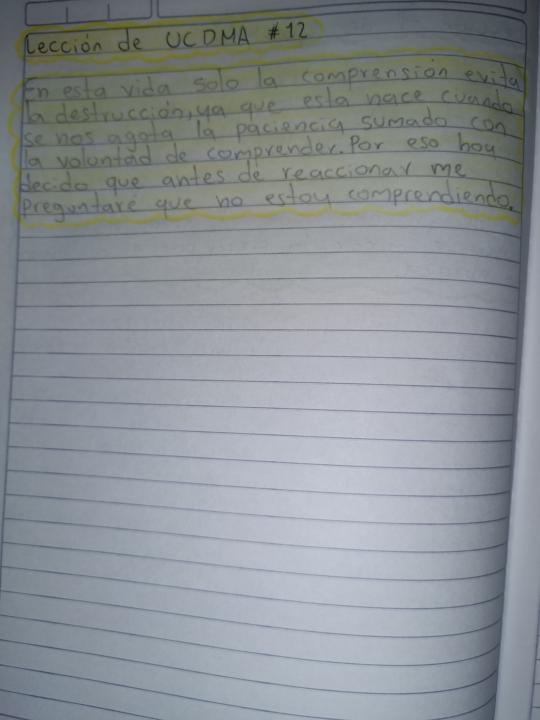 Lección de UCDMA #12
En esta vida solo la comprensión evita
la destrucción, ya que esta nace cuando
se nos agota la paciencia sumado con
la voluntad de comprender. Por eso hoy
decido que antes de reaccionar me
preguntaré que no estoy comprendiendo.